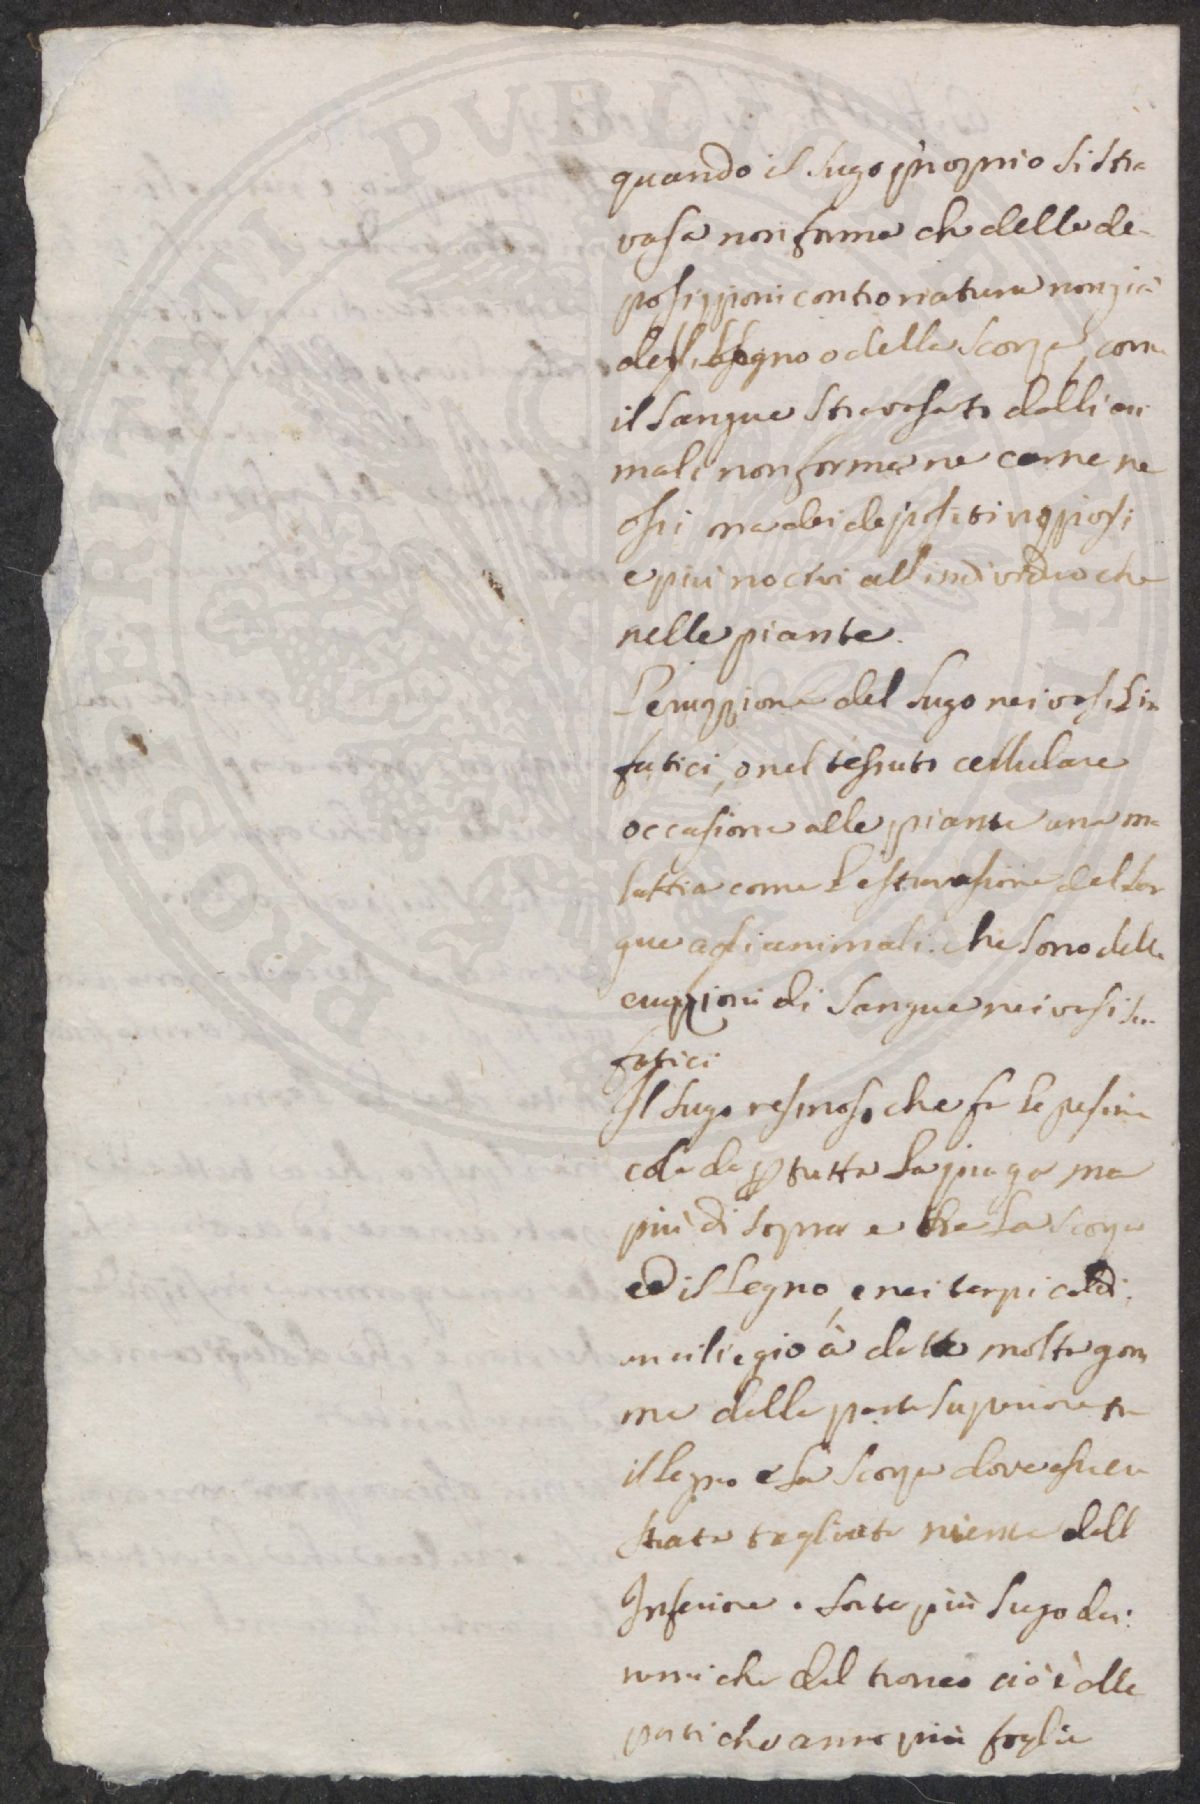 quando il sugo proprio si stra
vasa non forma che delle de-
posizzioni contro natura non già
del legno o della scorza, come
il sangue stravasato dalli ani
mali non forma ne carne ne
ossi ma dei depositi vizziosi
e più nocivi all individuo che
nelle piante.
L'eruzzione del sugo nei vasi Lin
fatici, o nel tessuto cellulare
occasiona alle piante una ma
lattia come l'estravasione del san
gue agli animali. che sono delle
eruzzioni di sangue nei vasi lin
fatici
Il sugo resinoso che fa le resine
cola da per tutta la piaga ma
più di sopra e tra la scorza
ed il Legno, e nei tempi caldi.
un ciliegio à dato molta gom
ma dalla parte superiore tra
il legno e la scorza dove era
stata tagliata niente dall
Inferiore. sorte più sugo dai
rami che dal tronco ciò è alle
parti che anno più foglie
PROPRIETATI PVBLICAE